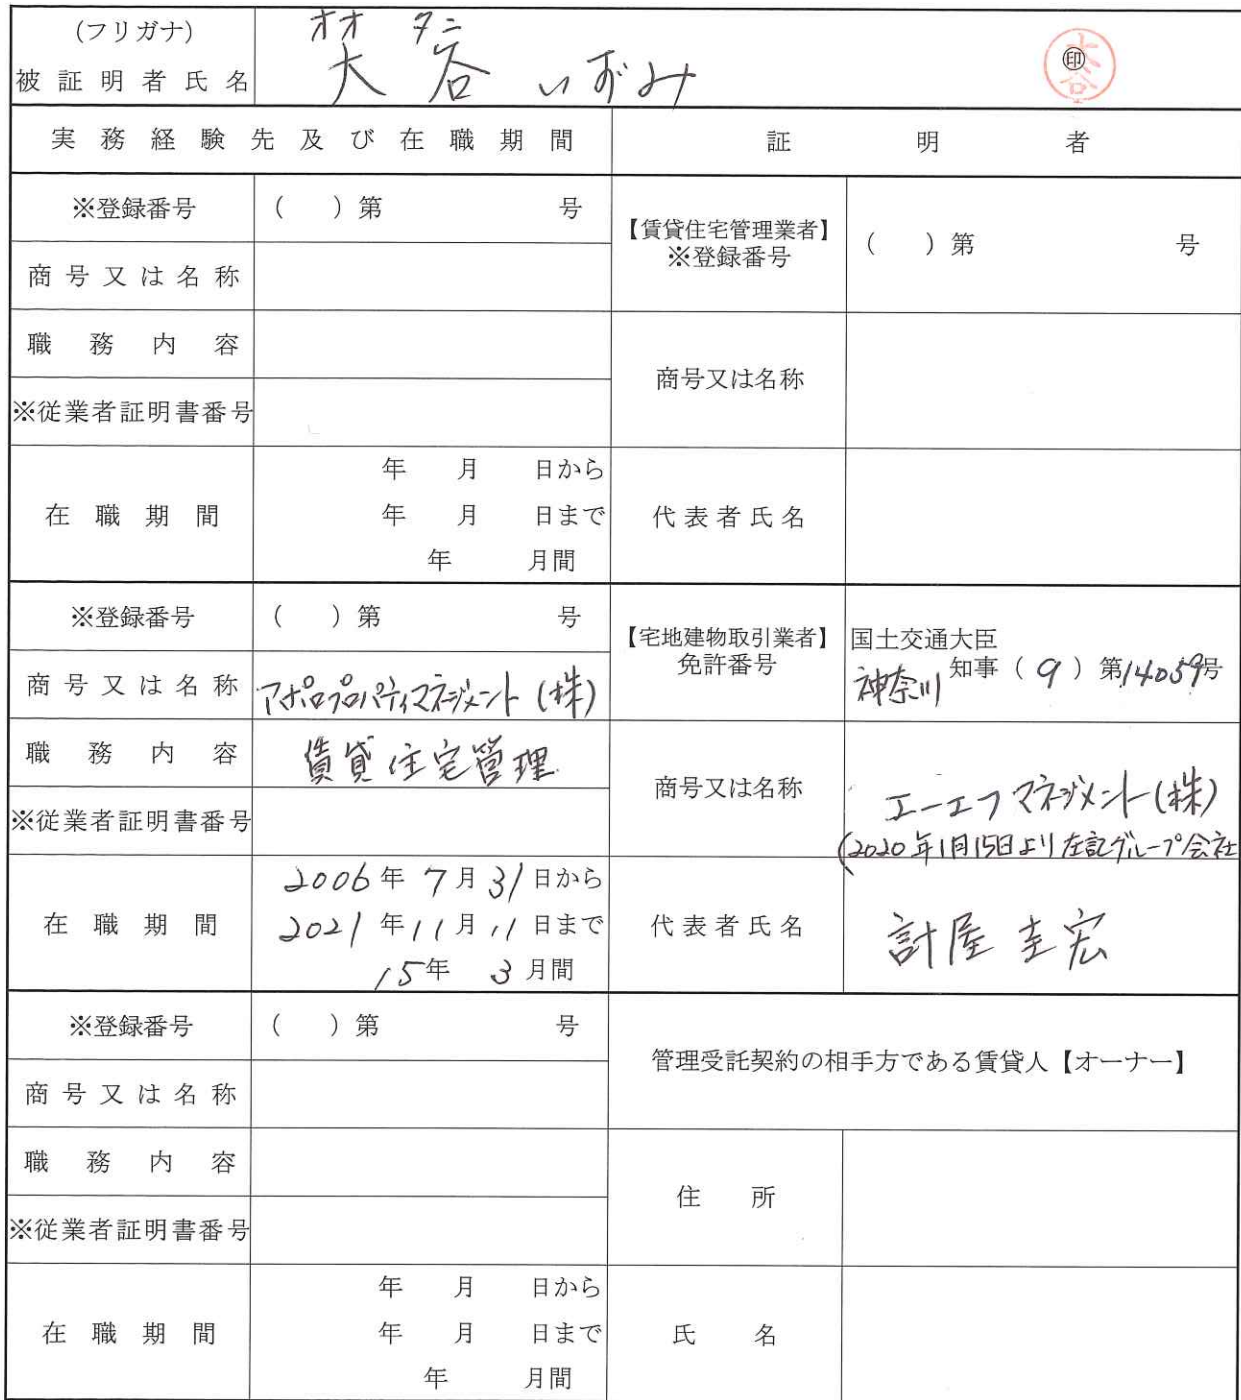 (フリガナ) オオ タニ
被証明者氏名 大谷 いずみ ㊞ 大谷
実務経験先及び在職期間 証明者
※登録番号 ( )第 号 【賃貸住宅管理業者】
※登録番号 ( )第 号
商号又は名称
職務内容 商号又は名称
※従業者証明書番号
年 月 日から
在職期間 年 月 日まで 代表者氏名
年 月間
※登録番号 ( )第 号 【宅地建物取引業者】
免許番号 国土交通大臣
神奈川 知事(9)第14059号
商号又は名称 アポロプロパティマネジメント(株)
職務内容 賃貸住宅管理 商号又は名称 エーエフマネジメント(株)
(2020年1月15日より左記グループ会社
※従業者証明書番号
2006年7月31日から
在職期間 2021年11月11日まで 代表者氏名 計屋 圭宏
15年 3月間
※登録番号 ( )第 号 管理受託契約の相手方である賃貸人【オーナー】
商号又は名称
職務内容 住所
※従業者証明書番号
年 月 日から
在職期間 年 月 日まで 氏名
年 月間